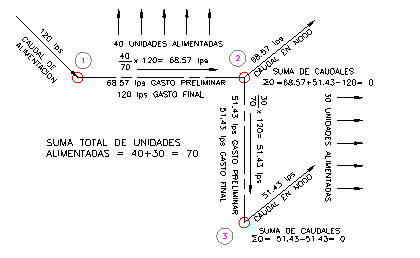 120 lps
CAUDAL DE
ALIMENTACION
1
40 UNIDADES ALIMENTADAS
40/70 x 120= 68.57 lps
68.57 lps GASTO PRELIMINAR
120 lps GASTO FINAL
2
68.57 lps
CAUDAL EN NODO
SUMA DE CAUDALES
ΣQ=68.57+51.43-120= 0
30/70 x 120= 51.43 lps
51.43 lps GASTO PRELIMINAR
51.43 lps GASTO FINAL
30 UNIDADES ALIMENTADAS
SUMA TOTAL DE UNIDADES
ALIMENTADAS = 40+30 = 70
51.43 lps
CAUDAL EN NODO
3
SUMA DE CAUDALES
ΣQ= 51.43-51.43= 0